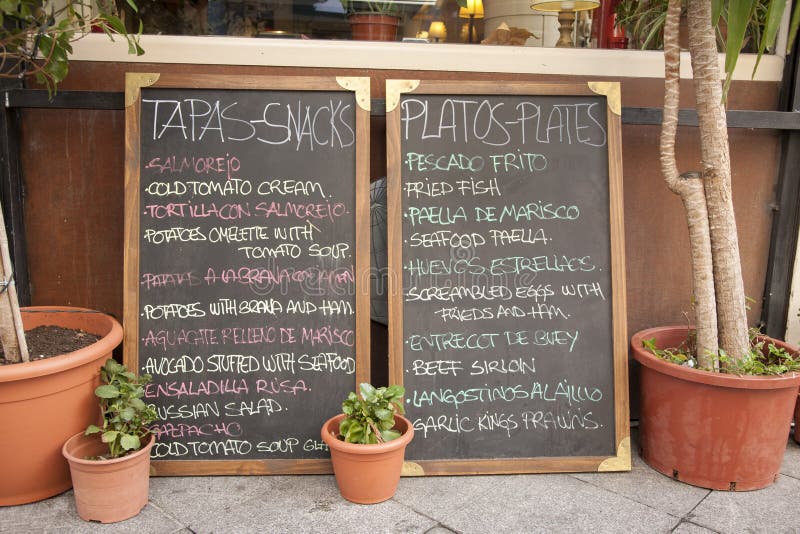 TAPAS-SNACKS
·SALMOREJO
·COLD TOMATO CREAM.
·TORTILLA CON SALMOREJO.
·POTATOES OMELETTE WITH
TOMATO SOUP.
·PATATAS A LA BRAVA CON JAMON
·POTATOES WITH BRAVA AND HAM.
·AGUACATE RELLENO DE MARISCO
·AVOCADO STUFFED WITH SEAFOOD
·ENSALADILLA RUSA.
·RUSSIAN SALAD.
·GAZPACHO
·COLD TOMATO SOUP
PLATOS-PLATES
·PESCADO FRITO
·FRIED FISH
·PAELLA DE MARISCO
·SEAFOOD PAELLA.
·HUEVOS ESTRELLAOS.
·SCREAMBLED EGGS WITH
FRIEDS AND HAM.
·ENTRECOT DE BUEY
·BEEF SIRLOIN
·LANGOSTINOS AL AJILLO
·GARLIC KINGS PRAWNS.
dreamstime